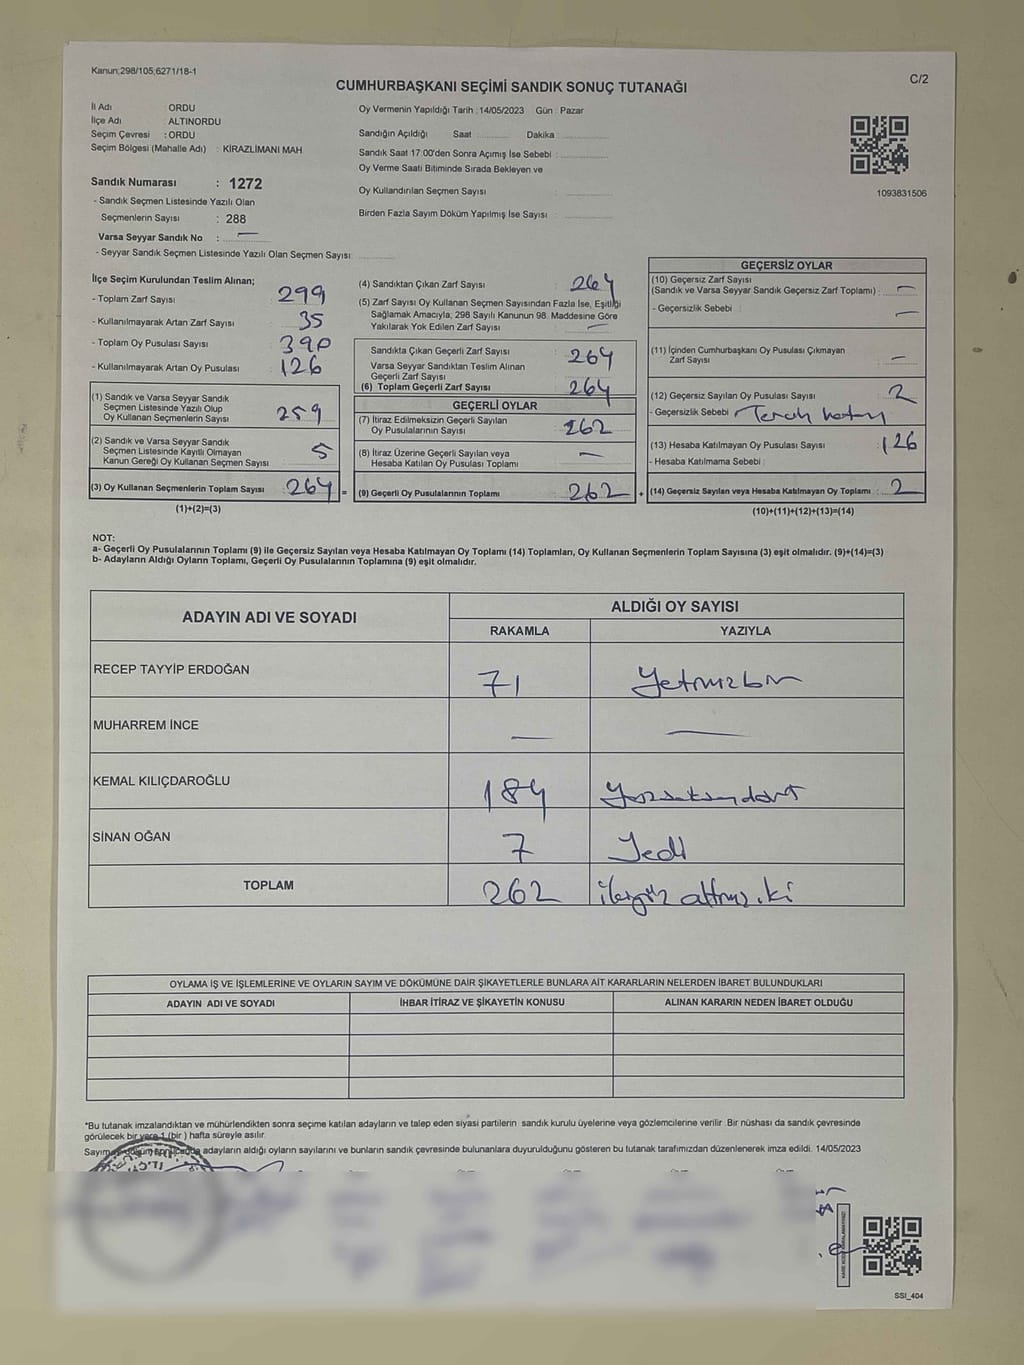 Kanun;298/105;6271/18-1
C/2
CUMHURBAŞKANI SEÇİMİ SANDIK SONUÇ TUTANAĞI
İl Adı : ORDU
İlçe Adı : ALTINORDU
Seçim Çevresi : ORDU
Seçim Bölgesi (Mahalle Adı) : KİRAZLİMANI MAH
Sandık Numarası : 1272
- Sandık Seçmen Listesinde Yazılı Olan
Seçmenlerin Sayısı : 288
Varsa Seyyar Sandık No : —
- Seyyar Sandık Seçmen Listesinde Yazılı Olan Seçmen Sayısı:
Oy Vermenin Yapıldığı Tarih : 14/05/2023 Gün : Pazar
Sandığın Açıldığı Saat Dakika
Sandık Saat 17:00'den Sonra Açımış İse Sebebi :
Oy Verme Saati Bitiminde Sırada Bekleyen ve
Oy Kullandırılan Seçmen Sayısı
Birden Fazla Sayım Döküm Yapılmış İse Sayısı
1093831506
İlçe Seçim Kurulundan Teslim Alınan;
- Toplam Zarf Sayısı 299
- Kullanılmayarak Artan Zarf Sayısı 35
- Toplam Oy Pusulası Sayısı 390
- Kullanılmayarak Artan Oy Pusulası 126
(1) Sandık ve Varsa Seyyar Sandık
Seçmen Listesinde Yazılı Olup
Oy Kullanan Seçmenlerin Sayısı 259
(2) Sandık ve Varsa Seyyar Sandık
Seçmen Listesinde Kayıtlı Olmayan
Kanun Gereği Oy Kullanan Seçmen Sayısı 5
(3) Oy Kullanan Seçmenlerin Toplam Sayısı 264 =
(1)+(2)=(3)
(4) Sandıktan Çıkan Zarf Sayısı 264
(5) Zarf Sayısı Oy Kullanan Seçmen Sayısından Fazla İse, Eşitliği
Sağlamak Amacıyla; 298 Sayılı Kanunun 98. Maddesine Göre
Yakılarak Yok Edilen Zarf Sayısı —
Sandıkta Çıkan Geçerli Zarf Sayısı 264
Varsa Seyyar Sandıktan Teslim Alınan
Geçerli Zarf Sayısı
(6) Toplam Geçerli Zarf Sayısı 264
GEÇERLİ OYLAR
(7) İtiraz Edilmeksizin Geçerli Sayılan
Oy Pusulalarının Sayısı 262
(8) İtiraz Üzerine Geçerli Sayılan veya
Hesaba Katılan Oy Pusulası Toplamı —
(9) Geçerli Oy Pusulalarının Toplamı 262 +
GEÇERSİZ OYLAR
(10) Geçersiz Zarf Sayısı
(Sandık ve Varsa Seyyar Sandık Geçersiz Zarf Toplamı) : —
- Geçersizlik Sebebi —
(11) İçinden Cumhurbaşkanı Oy Pusulası Çıkmayan
Zarf Sayısı —
(12) Geçersiz Sayılan Oy Pusulası Sayısı 2
- Geçersizlik Sebebi Tercih hatası
(13) Hesaba Katılmayan Oy Pusulası Sayısı : 126
- Hesaba Katılmama Sebebi :
(14) Geçersiz Sayılan veya Hesaba Katılmayan Oy Toplamı : 2
(10)+(11)+(12)+(13)=(14)
NOT:
a- Geçerli Oy Pusulalarının Toplamı (9) ile Geçersiz Sayılan veya Hesaba Katılmayan Oy Toplamı (14) Toplamları, Oy Kullanan Seçmenlerin Toplam Sayısına (3) eşit olmalıdır. (9)+(14)=(3)
b- Adayların Aldığı Oyların Toplamı, Geçerli Oy Pusulalarının Toplamına (9) eşit olmalıdır.
ADAYIN ADI VE SOYADI ALDIĞI OY SAYISI
RAKAMLA YAZIYLA
RECEP TAYYİP ERDOĞAN 71 Yetmişbir
MUHARREM İNCE — —
KEMAL KILIÇDAROĞLU 184 Yüzseksendört
SİNAN OĞAN 7 Yedi
TOPLAM 262 ikiyüz altmış iki
OYLAMA İŞ VE İŞLEMLERİNE VE OYLARIN SAYIM VE DÖKÜMÜNE DAİR ŞİKAYETLERLE BUNLARA AİT KARARLARIN NELERDEN İBARET BULUNDUKLARI
ADAYIN ADI VE SOYADI İHBAR İTİRAZ VE ŞİKAYETİN KONUSU ALINAN KARARIN NEDEN İBARET OLDUĞU
*Bu tutanak imzalandıktan ve mühürlendikten sonra seçime katılan adayların ve talep eden siyasi partilerin sandık kurulu üyelerine veya gözlemcilerine verilir. Bir nüshası da sandık çevresinde
görülecek bir yere 1 (bir ) hafta süreyle asılır.
Sayım döküm sonucunda adayların aldığı oyların sayılarını ve bunların sandık çevresinde bulunanlara duyurulduğunu gösteren bu tutanak tarafımızdan düzenlenerek imza edildi. 14/05/2023
SSI_404